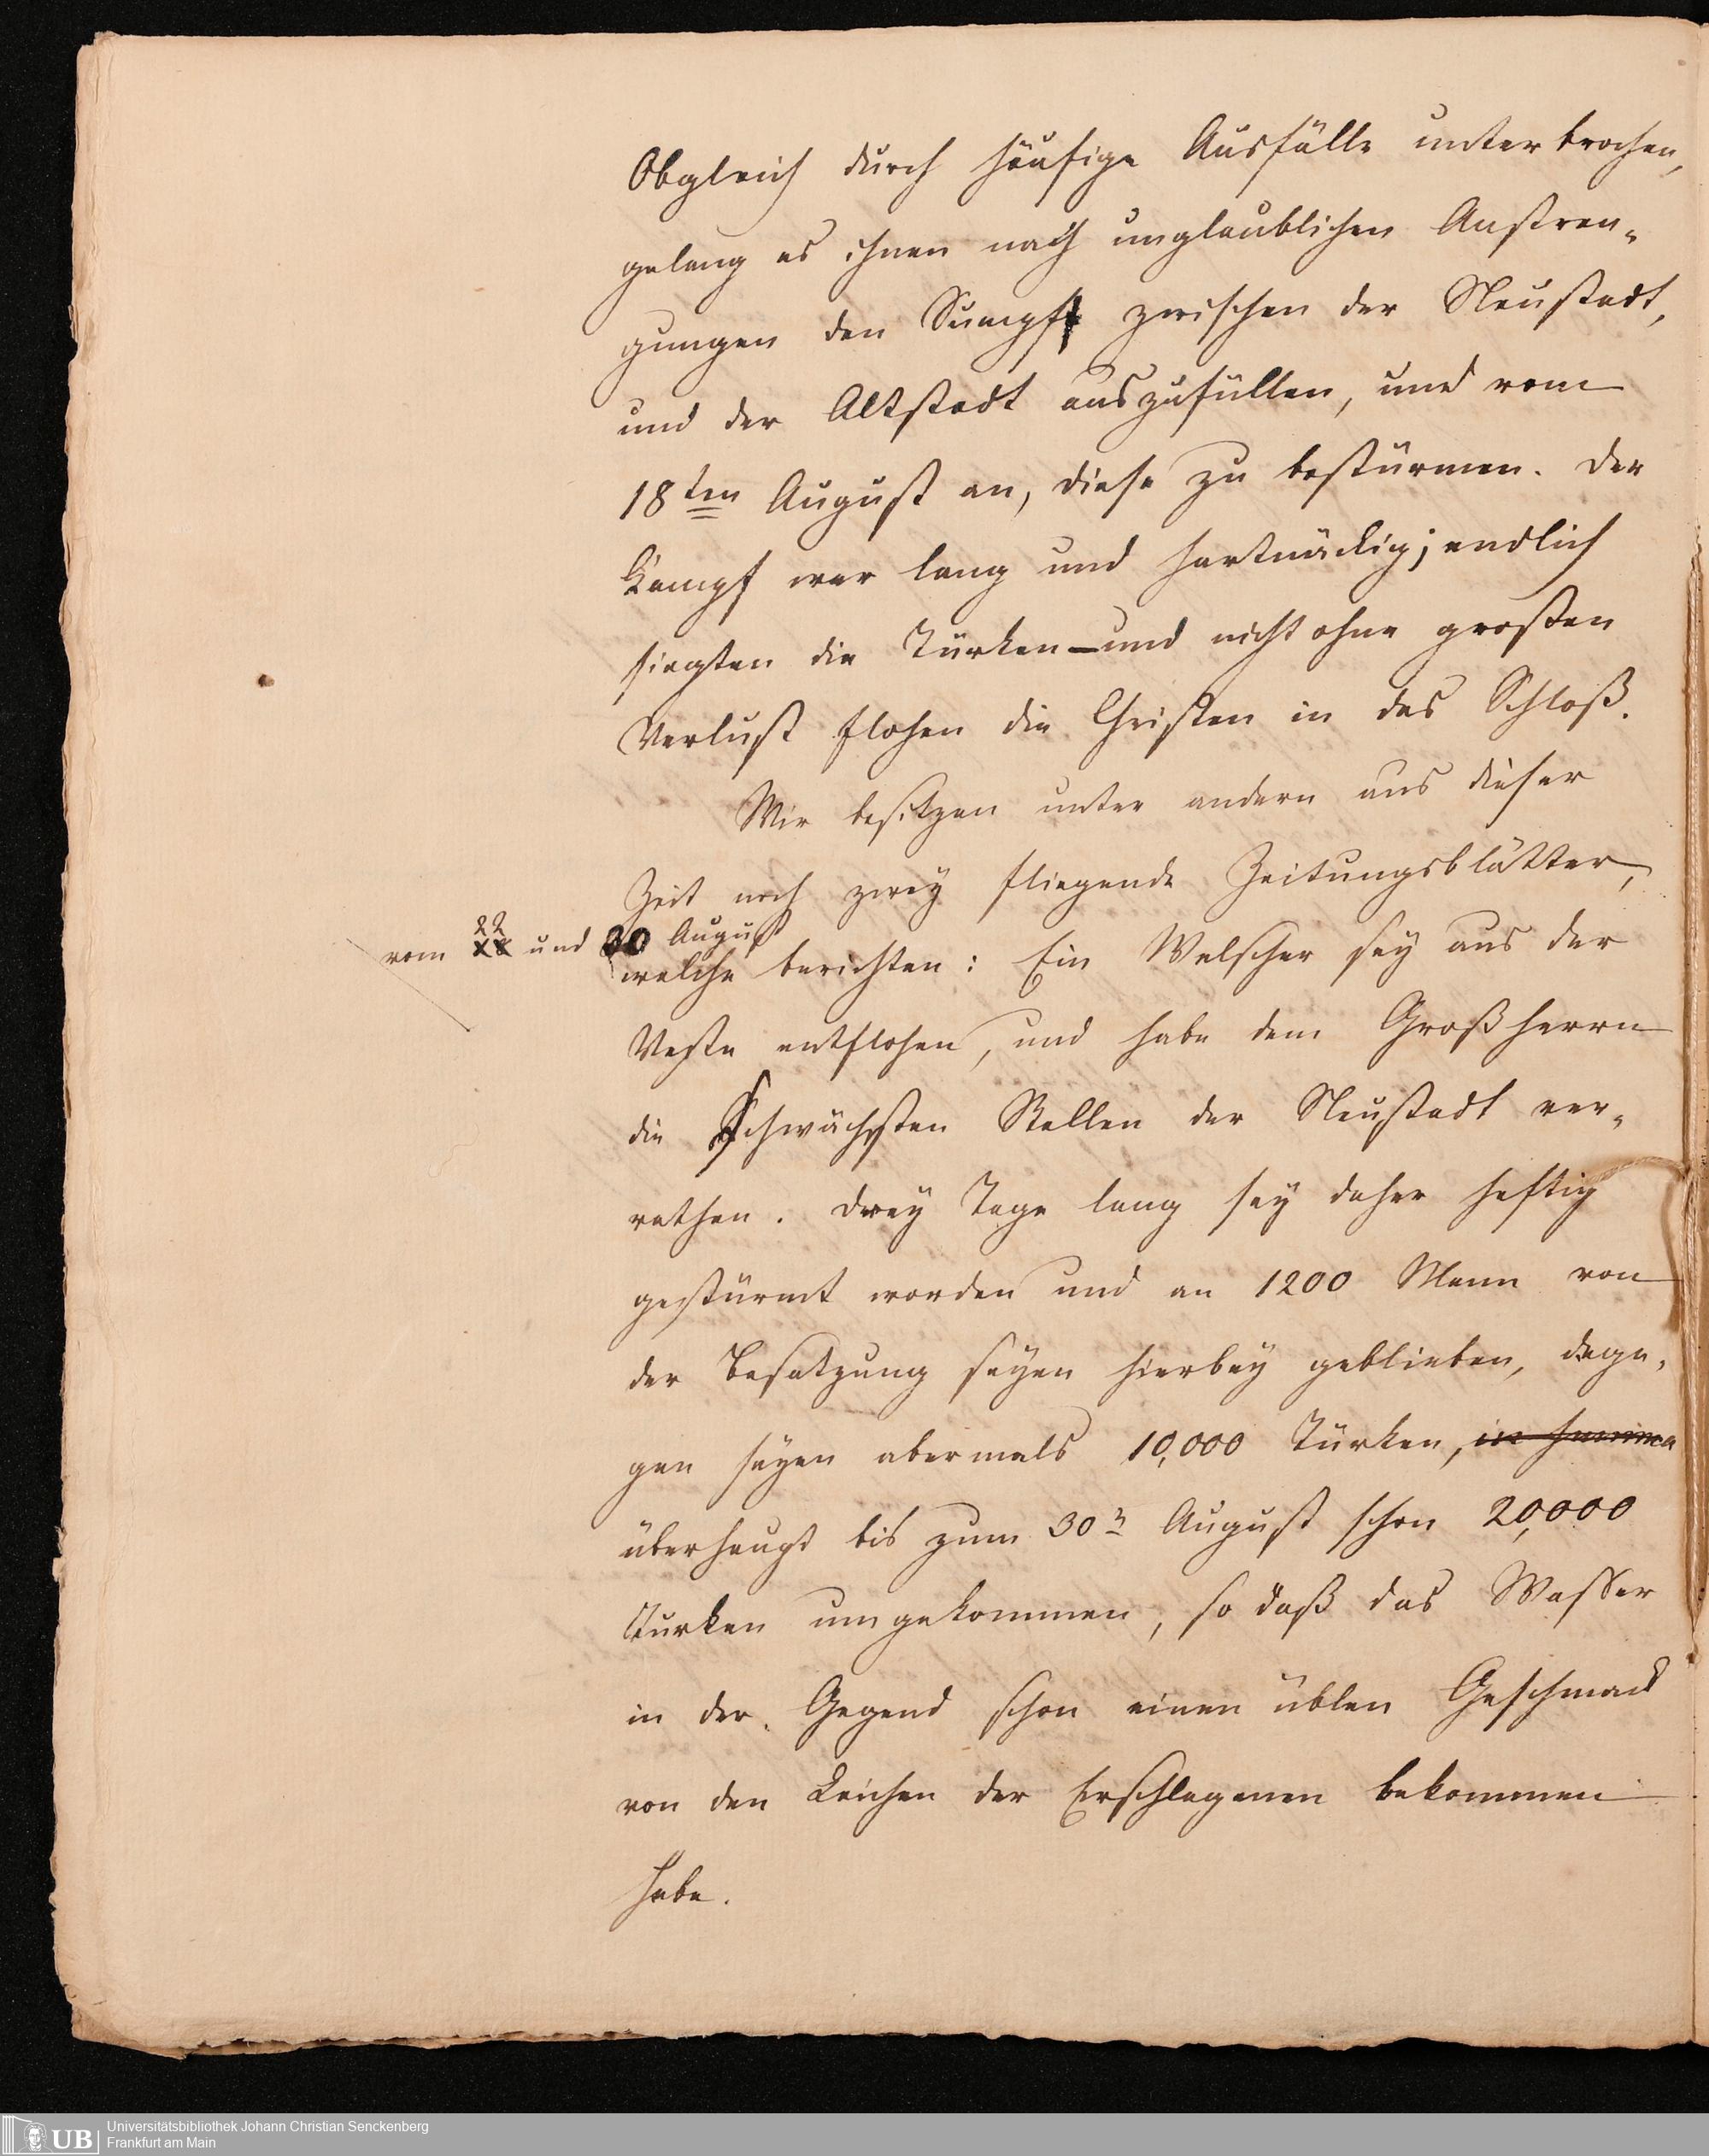 Obgleich durch häufige Ausfälle unterbrochen,
gelang es ihnen nach unglaublichen Anstren-
gungen den Sumpf zwischen der Neustadt,
und der Altstadt auszufüllen, und vom
18ten August an, diese zu bestürmen. Der
Kampf war lang und hartnäckig; endlich
siegten die Türken – und nicht ohne großen
Verlust flohen die Christen in das Schloß.
Wir besitzen unter andern aus dieser
Zeit noch zwey fliegende Zeitungsblätter,
vom 22 und 30 August
welche berichten: Ein Welscher sey aus der
Veste entflohen, und habe dem Großherrn
die schwächsten Stellen der Neustadt ver-
rathen. Drey Tage lang sey daher heftig
gestürmt worden und an 1200 Mann von
der Besatzung seyen hierbey geblieben, dage-
gen seyen abermals 10,000 Türken, in summa
überhaupt bis zum 30n August schon 20,000
Turken umgekommen, so daß das Wasser
in der Gegend schon einen üblen Geschmack
von den Leichen der Erschlagenen bekommen
habe.
UB
Universitätsbibliothek Johann Christian Senckenberg
Frankfurt am Main